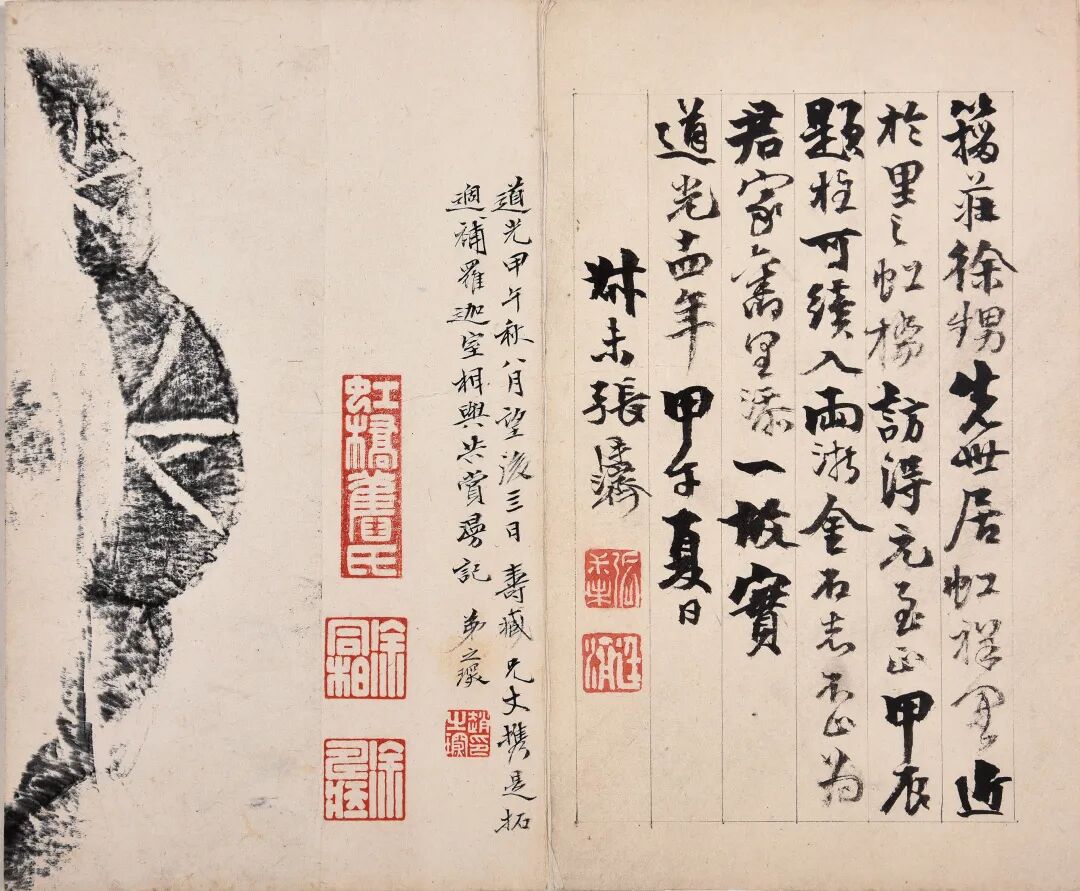 籀莊徐甥先世居虹祥里近
於里之虹橋訪得元至正甲辰
題柱可續入兩浙金石志不止為
君家舊里添一故實
道光十四年甲午夏日
叔未張廷濟
張
廷濟
道光甲午秋八月望後三日壽臧兄丈攜是拓
過補羅迦室相與共賞易記 弟之琛
趙印之琛
虹橋舊氏
徐同柏
徐